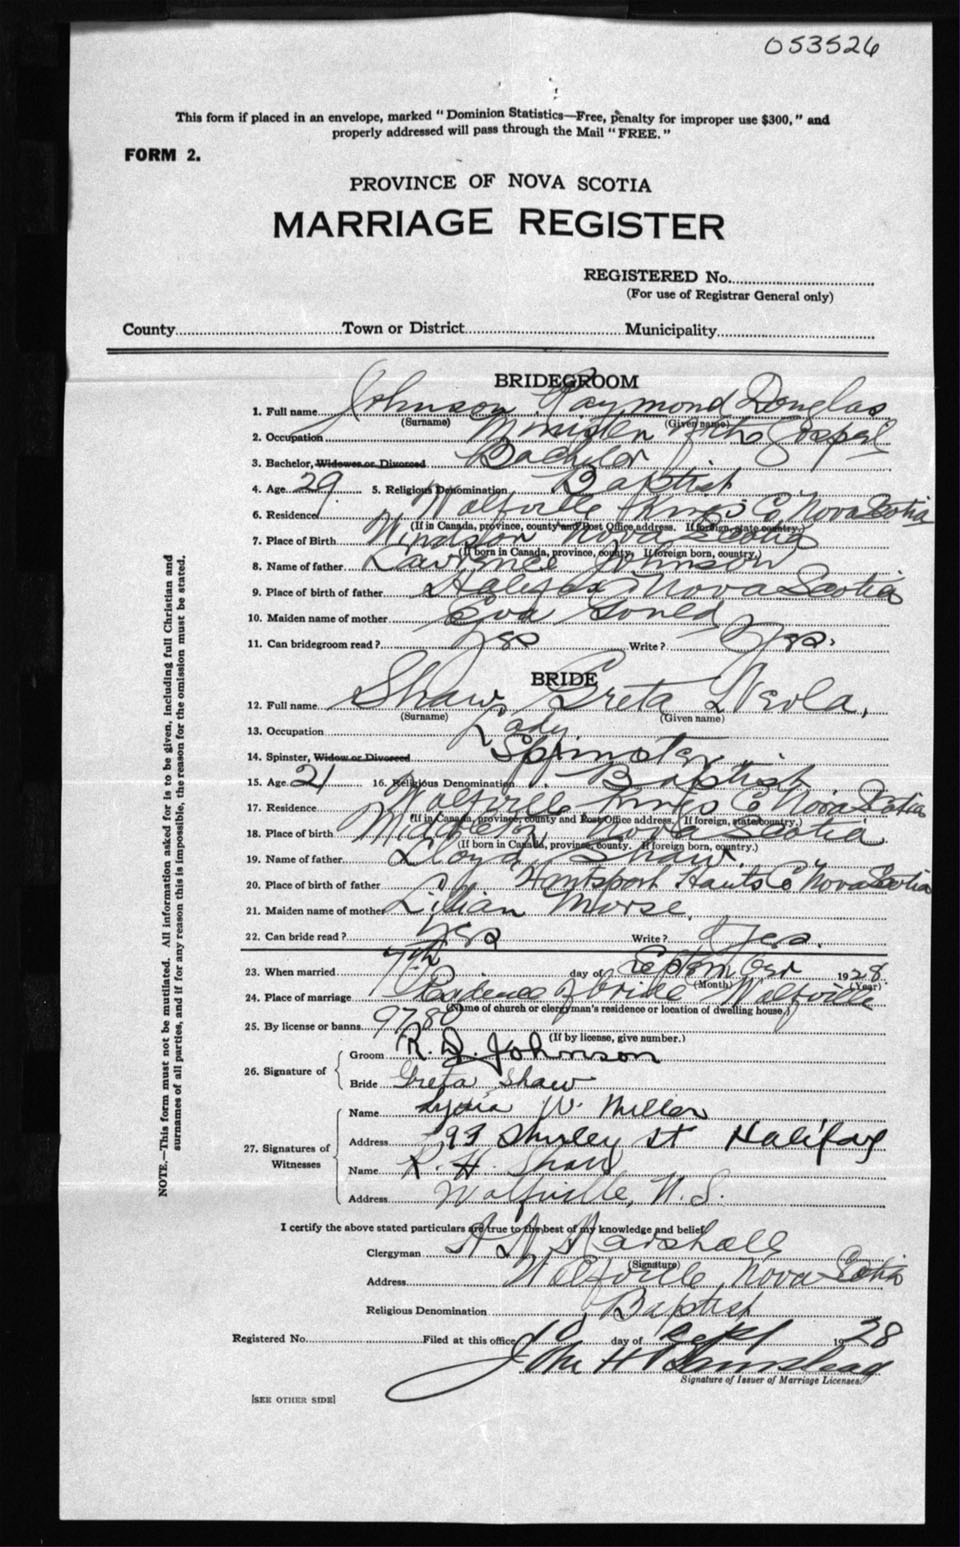 053526
This form if placed in an envelope, marked "Dominion Statistics—Free, penalty for improper use $300," and
properly addressed will pass through the Mail "FREE."
FORM 2.
PROVINCE OF NOVA SCOTIA
MARRIAGE REGISTER
REGISTERED No.
(For use of Registrar General only)
County Town or District Municipality
BRIDEGROOM
1. Full name Johnson, Raymond Douglas
(Surname) (Given name)
2. Occupation Minister of the Gospel
3. Bachelor, Widower or Divorced Bachelor
4. Age 29 5. Religious Denomination Baptist
6. Residence Wolfville Kings Co Nova Scotia
(If in Canada, province, county and Post Office address. If foreign, state country.)
7. Place of Birth Nova Scotia
(If born in Canada, province, county. If foreign born, country.)
8. Name of father Lawrence Johnson
9. Place of birth of father Halifax Nova Scotia
10. Maiden name of mother Eva
11. Can bridegroom read? Yes Write? Yes.
BRIDE
12. Full name Shaw, Greta Neola,
(Surname) (Given name)
13. Occupation Lady
14. Spinster, Widow or Divorced Spinster
15. Age 21 16. Religious Denomination Baptist
17. Residence Wolfville Kings Co Nova Scotia
(If in Canada, province, county and Post Office address. If foreign, state country.)
18. Place of birth Middleton, Nova Scotia
(If born in Canada, province, county. If foreign born, country.)
19. Name of father Lloyd Shaw.
20. Place of birth of father Hantsport Hants Co Nova Scotia
21. Maiden name of mother Lilian Morse,
22. Can bride read? Yes Write? Yes.
23. When married day of September 1928
(Month) (Year)
24. Place of marriage Residence of bride Wolfville
(Name of church or clergyman's residence or location of dwelling house.)
25. By license or banns 9780
(If by license, give number.)
26. Signature of
Groom R. D. Johnson
Bride Greta Shaw
27. Signatures of
Witnesses
Name Lydia W. Miller
Address 93 Shirley St Halifax
Name R. H. Shaw
Address Wolfville, N. S.
I certify the above stated particulars are true to the best of my knowledge and belief.
Clergyman Marshall
(Signature)
Address Wolfville, Nova Scotia
Religious Denomination Baptist
Registered No. Filed at this office 10 day of Sept 1928
John H
Signature of Issuer of Marriage Licenses.
[SEE OTHER SIDE]
NOTE.—This form must not be mutilated. All information asked for is to be given, including full Christian and
surnames of all parties, and if for any reason this is impossible, the reason for the omission must be stated.